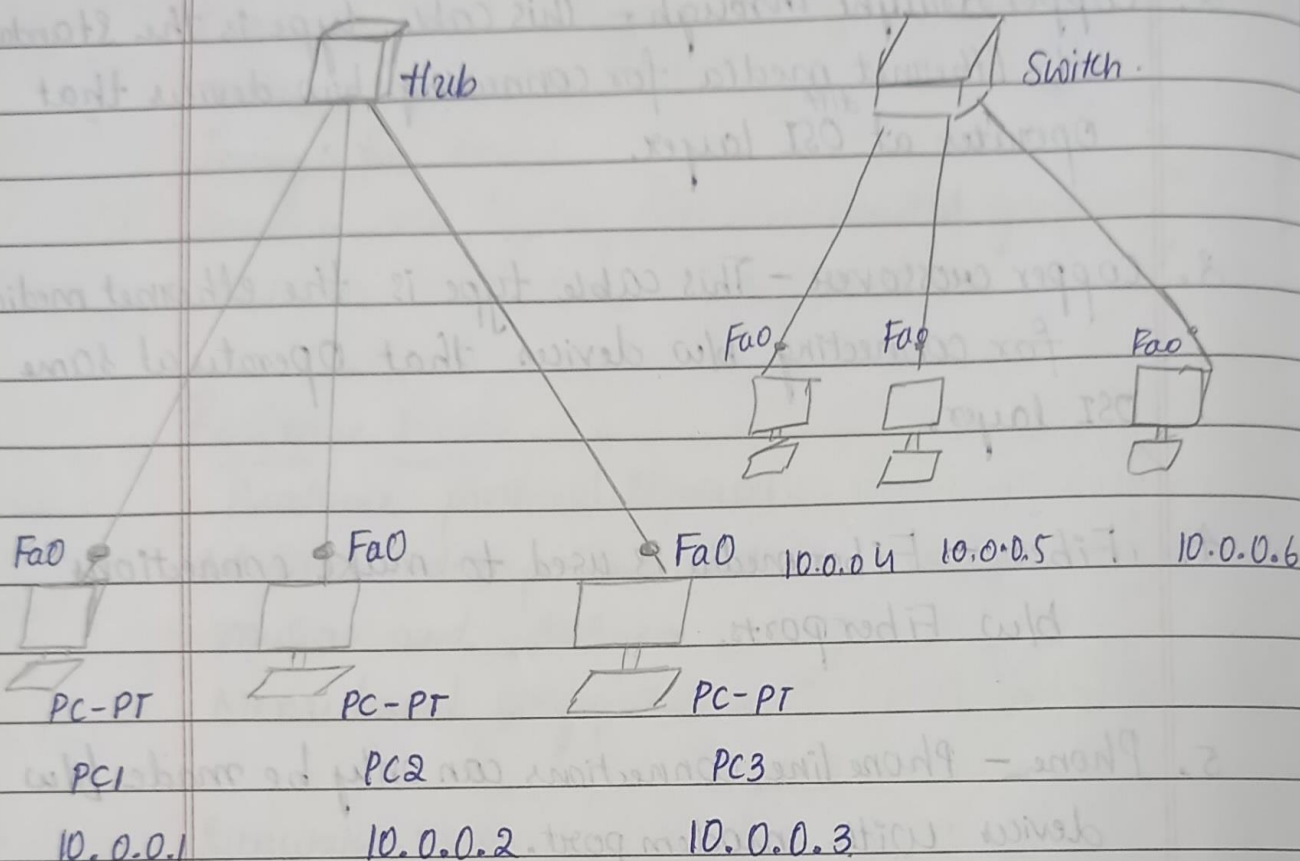 Hub
Switch.
Fa0 Fa0 Fa0
Fa0 Fa0 Fa0 10.0.04 10.0.0.5 10.0.0.6
PC-PT PC-PT PC-PT
PC1 PC2 PC3
10.0.0.1 10.0.0.2 10.0.0.3